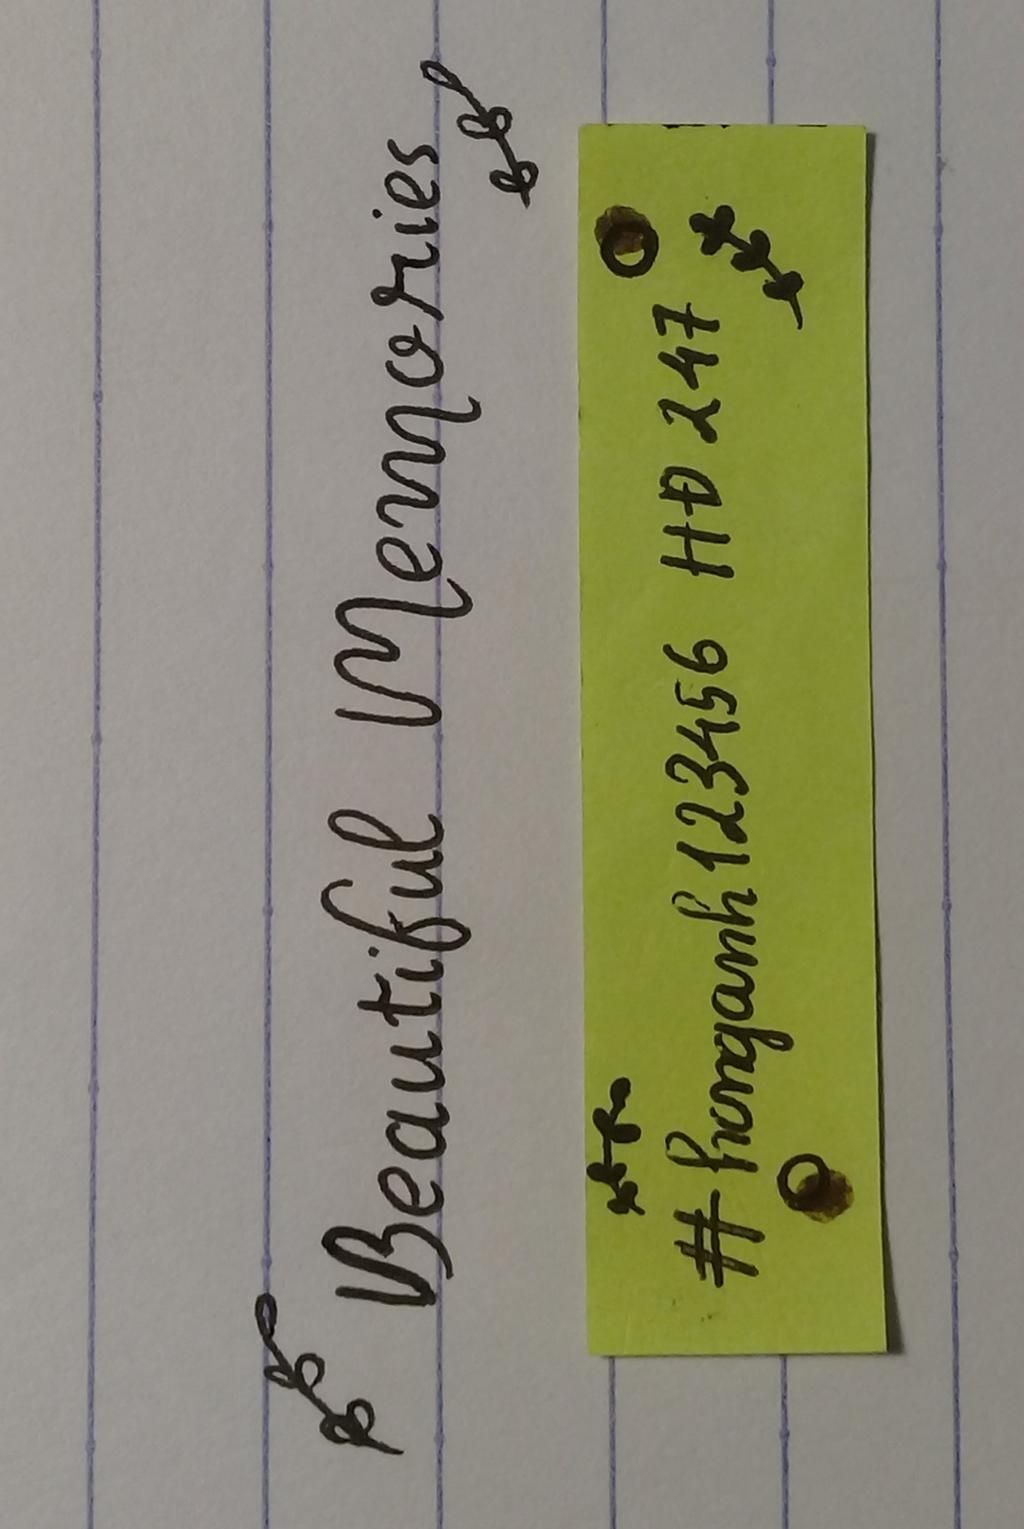 Beautiful Memories
#honganh123456 HD 247